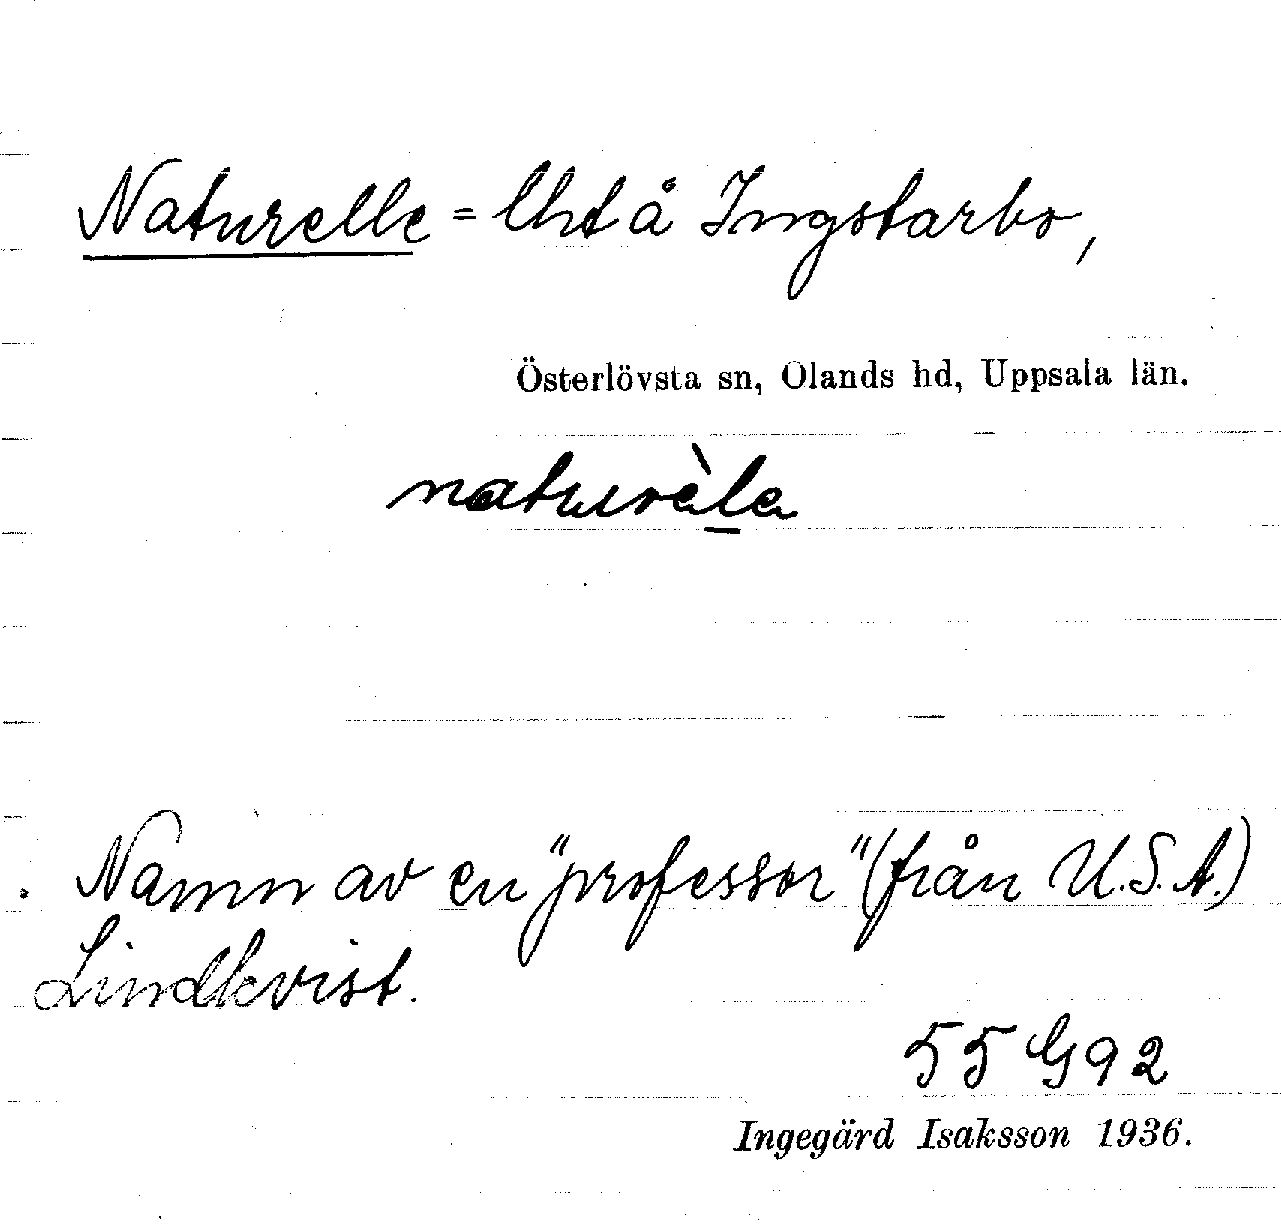 Naturelle = lht å Ingstarbo,
Österlövsta sn, Olands hd, Uppsala län.
naturèla
Namn av en "professor" (från U.S.A.)
Lindkvist.
55 G 92
Ingegärd Isaksson 1936.